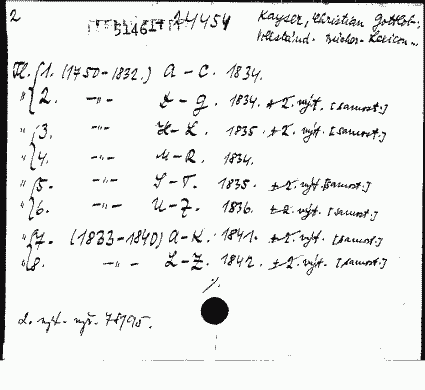 2 51461 24454 Kayser, Christian Gottlob:
Vollständ. Bücher-Lexicon...
1. (1750-1832.) A-C. 1834.
" 2. -"- D-G. 1834. + 2. výt. [samost.]
" 3. -"- H-L. 1835. + 2. výt. [samost.]
" 4. -"- M-R. 1834.
" 5. -"- S-T. 1835. + 2. výt. [samost.]
" 6. -"- U-Z. 1836. + 2. výt. [samost.]
" 7. (1833-1840) A-K. 1841. + 2. výt. [samost.]
" 8. -"- L-Z. 1842. + 2. výt. [samost.]
./.
2. výt.